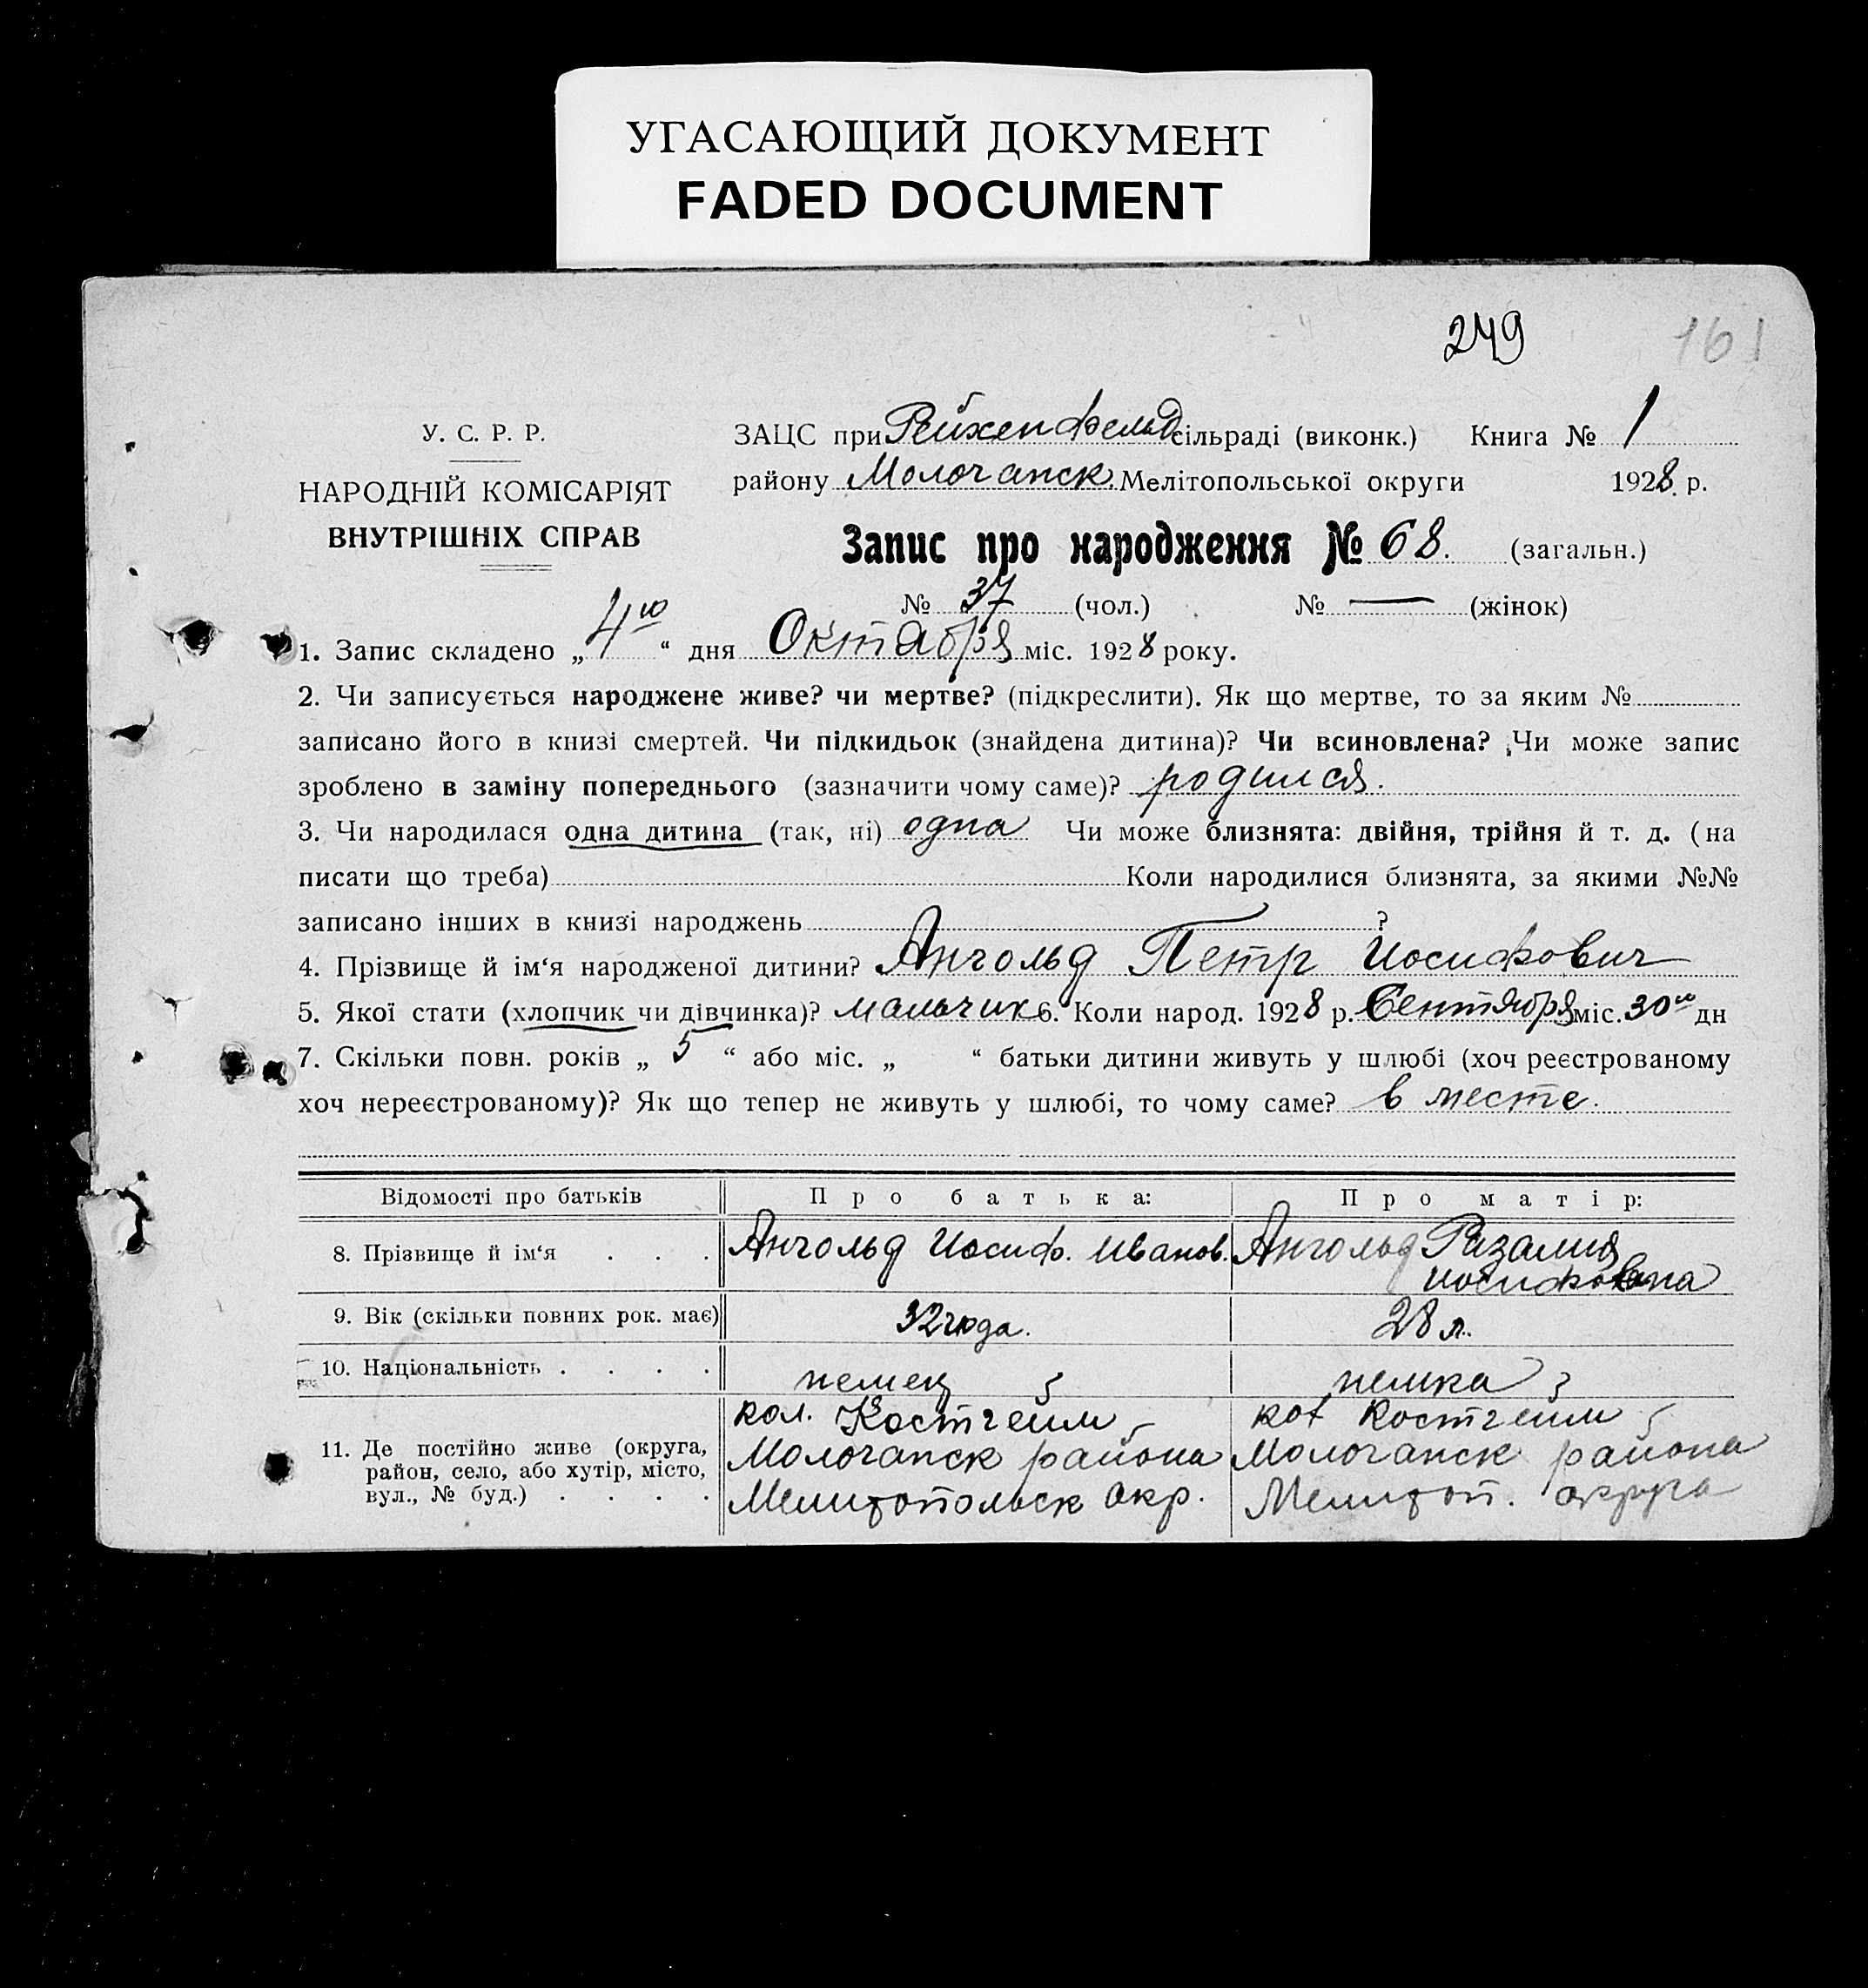 УГАСАЮЩИЙ ДОКУМЕНТ
FADED DOCUMENT
249 161
У. С. Р. Р.
НАРОДНІЙ КОМІСАРІЯТ
ВНУТРІШНІХ СПРАВ
ЗАЦС при Рейхенфельд сільраді (виконк.) Книга № 1
району Молочанск. Мелітопольської округи 1928. р.
Запис про народження № 68. (загальн.)
№ 37 (чол.) № — (жінок)
1. Запис складено „ 4го “ дня Октября міс. 1928 року.
2. Чи записується народжене живе? чи мертве? (підкреслити). Як що мертве, то за яким №
записано його в книзі смертей. Чи підкидьок (знайдена дитина)? Чи всиновлена? Чи може запис
зроблено в заміну попереднього (зазначити чому саме)? родился.
3. Чи народилася одна дитина (так, ні) одна Чи може близнята: двійня, трійня й т. д. (на
писати що треба) Коли народилися близнята, за якими №№
записано інших в книзі народжень ?
4. Прізвище й ім‘я народженої дитини? Ангольд Петр Иосифович
5. Якої стати (хлопчик чи дівчинка)? мальчик 6. Коли народ. 1928 р. Сентября міс. 30го дн
7. Скільки повн. років „ 5 “ або міс. „ “ батьки дитини живуть у шлюбі (хоч реєстрованому
хоч нереєстрованому)? Як що тепер не живуть у шлюбі, то чому саме? в месте.
Відомості про батьків Про батька: Про матір:
8. Прізвище й ім‘я . . . Ангольд Иосиф. Иванов. Ангольд Разалия
Иосифовна
9. Вік (скільки повних рок. має) 32 года. 28 л.
10. Національність . . . . немец немка
кол. Костгейм кол Костгейм
11. Де постійно живе (округа, Молочанск района Молочанск района
район, село, або хутір, місто,
вул., № буд.) . . . . Мелитопольск окр. Мелитоп. округа